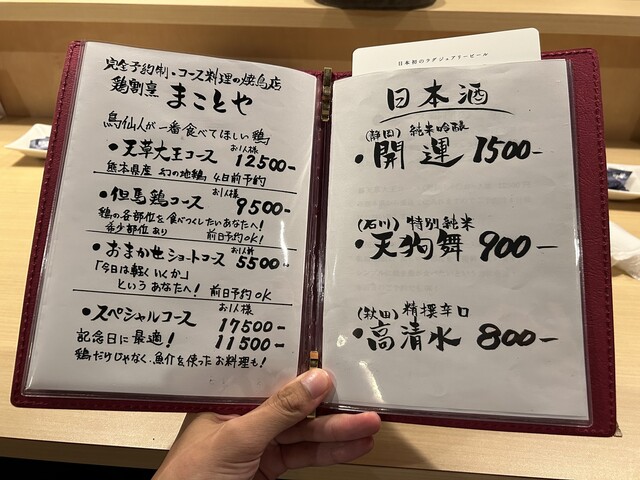 完全予約制・コース料理の焼鳥店
鶏割烹 まことや
鳥仙人が一番食べてほしい鶏
・天草大王コース お1人様 12500-
熊本県産 幻の地鶏 4日前予約
・但馬鶏コース お1人様 9500-
鶏の各部位を食べつくしたいあなたへ!
希少部位あり 前日予約OK!
・おまかせショートコース お1人様 5500-
「今日は軽くいくか」
という あなたへ! 前日予約OK
・スペシャルコース お1人様
17500-
記念日に最適! 11500-
鶏だけじゃなく、魚介を使ったお料理も!
日本初のラグジュアリービール
日本酒
(静岡) 純米吟醸
・開運 1500-
(石川) 特別純米
・天狗舞 900-
(秋田) 精撰辛口
・高清水 800-